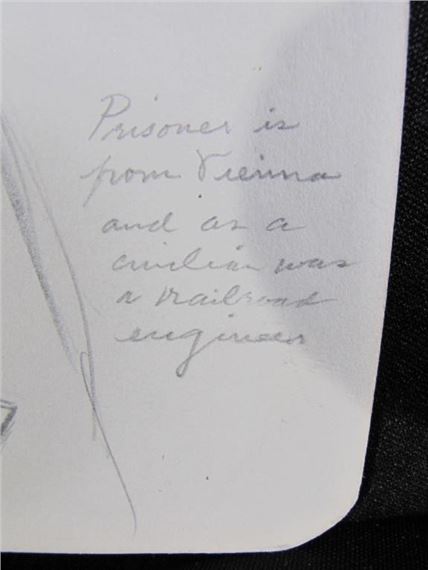 Prisoner is
from Vienna
and as a
civilian was
a railroad
engineer